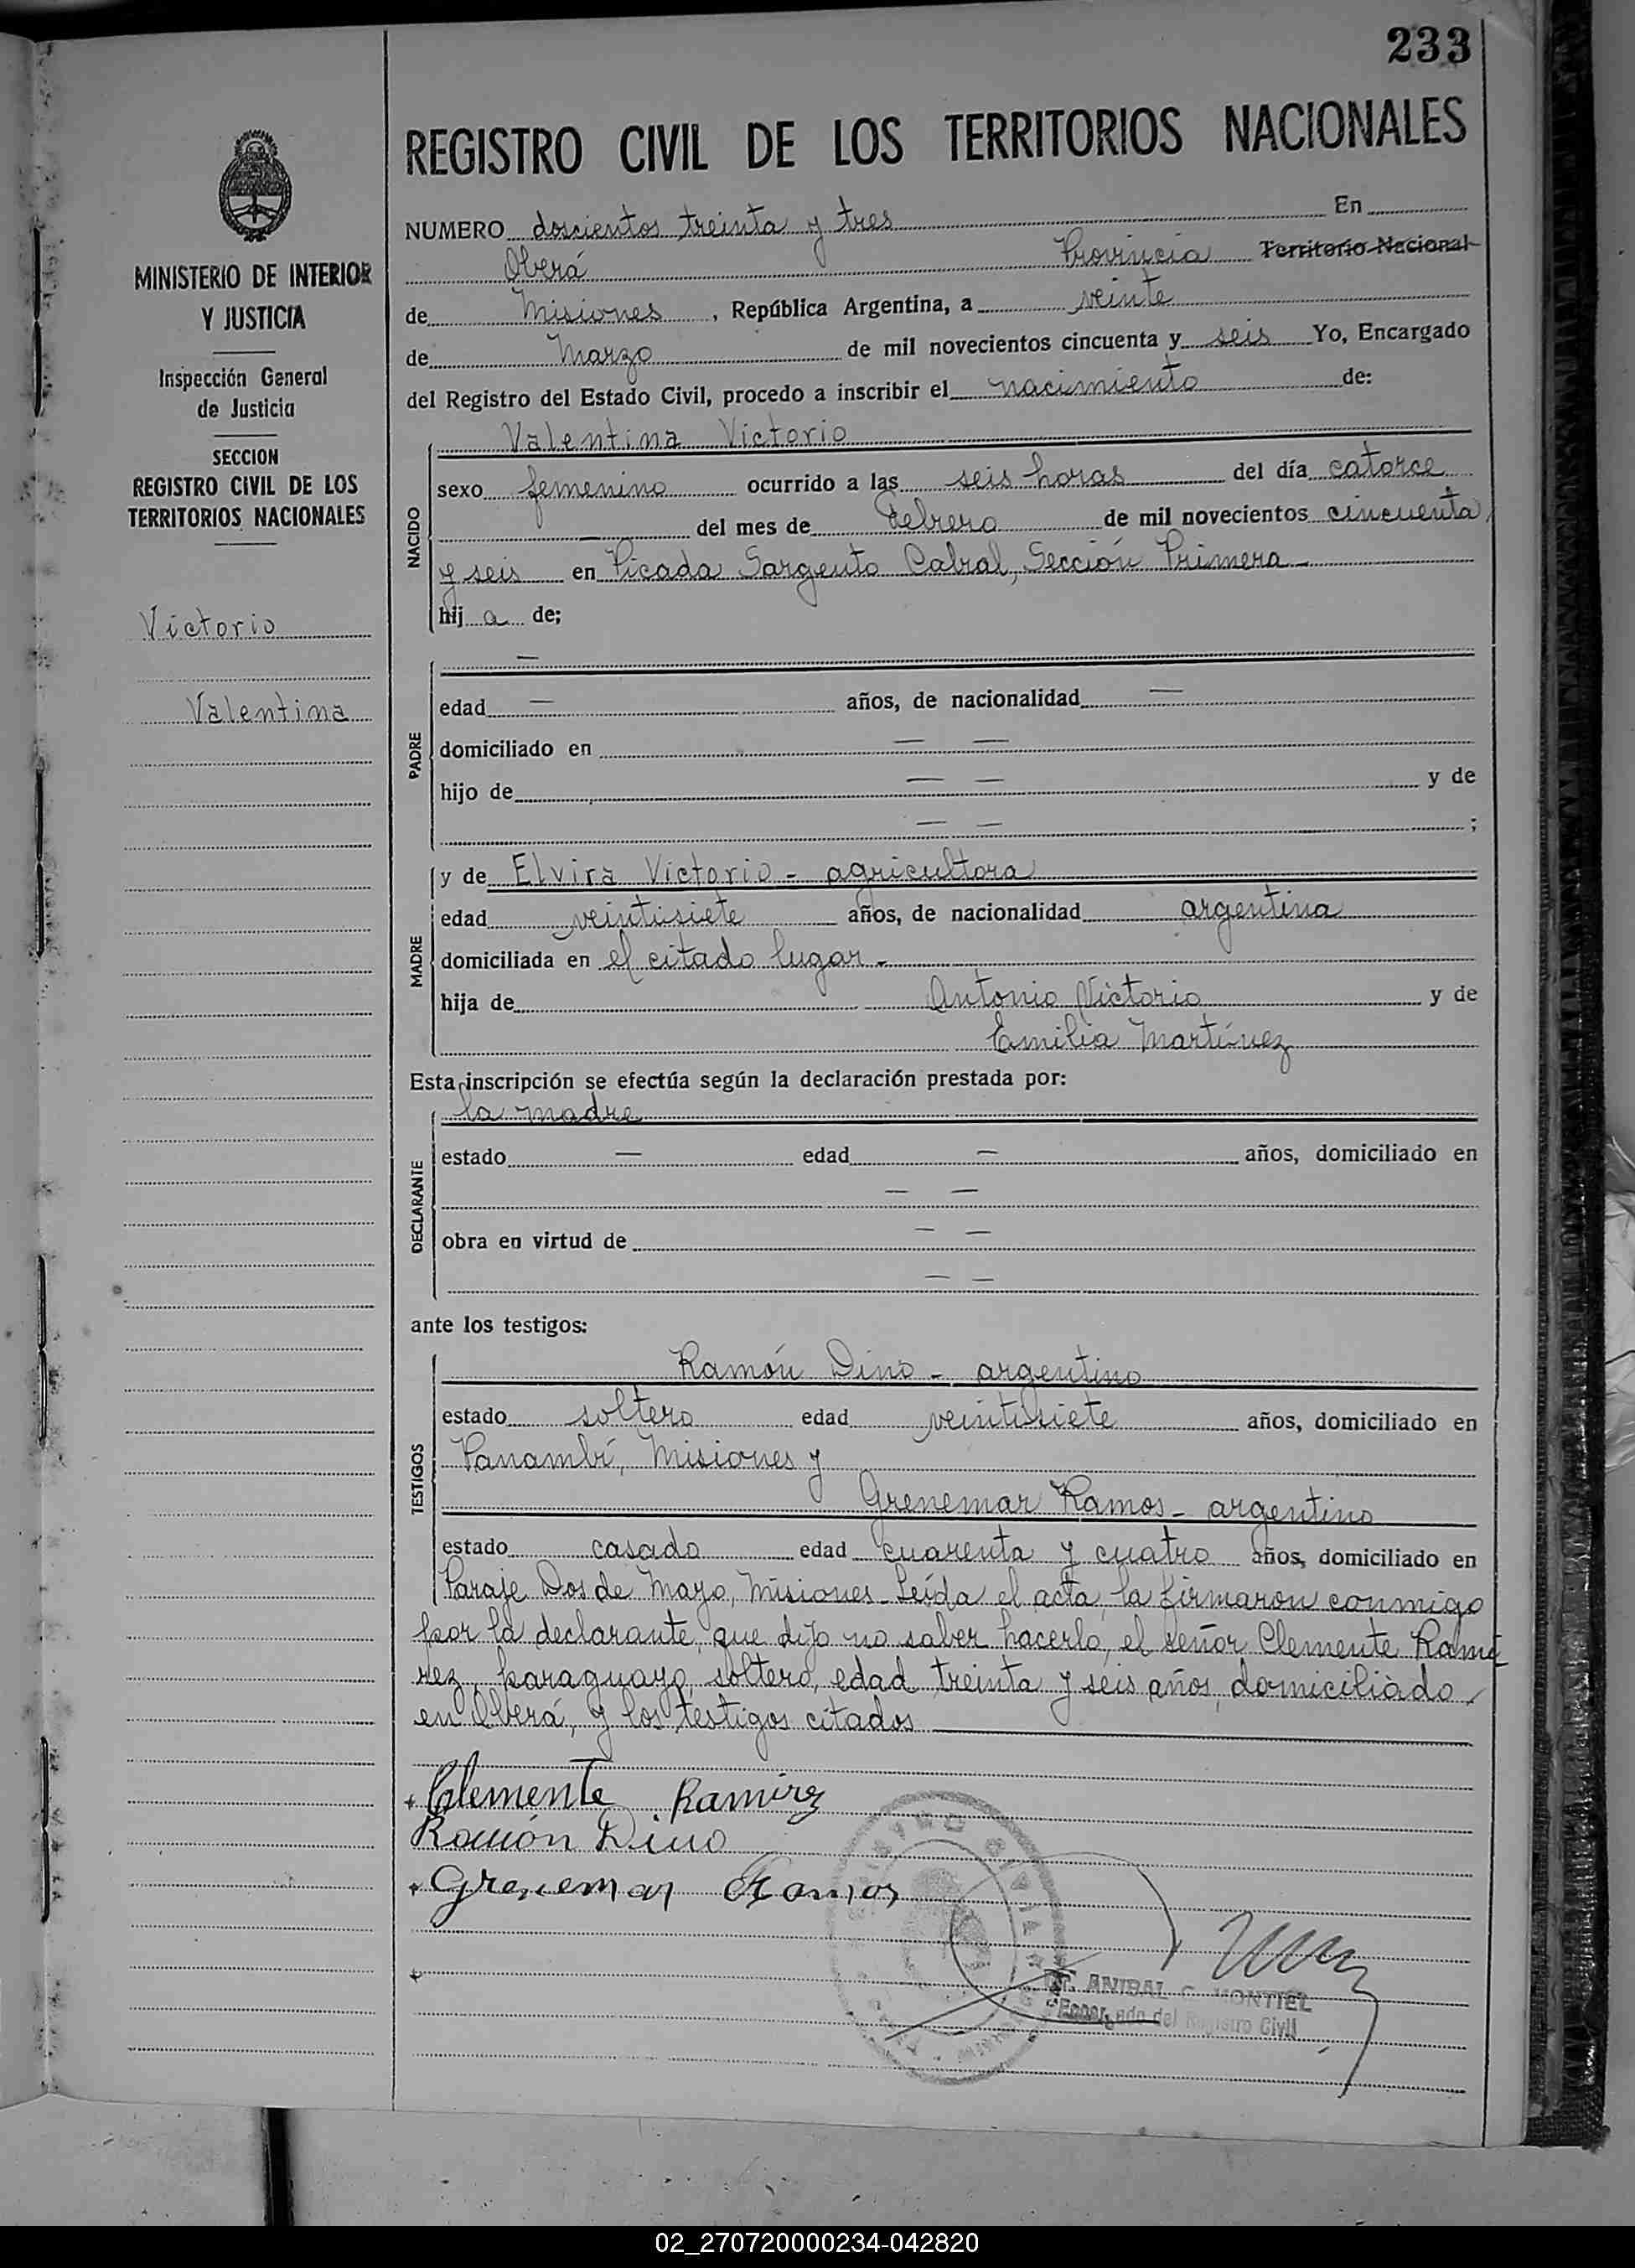 233
REGISTRO CIVIL DE LOS TERRITORIOS NACIONALES
MINISTERIO DE INTERIOR
Y JUSTICIA
Inspección General
de Justicia
SECCION
REGISTRO CIVIL DE LOS
TERRITORIOS NACIONALES
Victorio
Valentina
NUMERO doscientos treinta y tres En
Oberá Provincia Territorio Nacional
de Misiones, República Argentina, a veinte
de Marzo de mil novecientos cincuenta y seis Yo, Encargado
del Registro del Estado Civil, procedo a inscribir el nacimiento de:
NACIDO
Valentina Victorio
sexo femenino ocurrido a las seis horas del día catorce
del mes de Febrero de mil novecientos cincuenta
y seis en Picada Sargento Cabral, Sección Primera -
hij a de;
PADRE
—
edad — años, de nacionalidad —
domiciliado en — —
hijo de — — y de
— — ;
MADRE
y de Elvira Victorio - agricultora
edad veintisiete años, de nacionalidad argentina
domiciliada en el citado lugar -
hija de Antonio Victorio y de
Emilia Martínez
Esta inscripción se efectúa según la declaración prestada por:
DECLARANTE
la madre
estado — edad — años, domiciliado en
— —
obra en virtud de — —
— —
ante los testigos:
TESTIGOS
Ramón Dino - argentino
estado soltero edad veintisiete años, domiciliado en
Panambí, Misiones y
Grenemar Ramos - argentino
estado casado edad cuarenta y cuatro años, domiciliado en
Paraje Dos de Mayo, Misiones - Leída el acta, la firmaron conmigo
por la declarante, que dijo no saber hacerlo, el señor Clemente Ramí
rez, paraguayo, soltero, edad treinta y seis años, domiciliado
en Oberá, y los testigos citados
Clemente Ramirez
Ramón Dino
Grenemar Ramos
REGISTRO CIVIL
ANIBAL C. MONTIEL
Encargado del Registro Civil
02_270720000234-042820